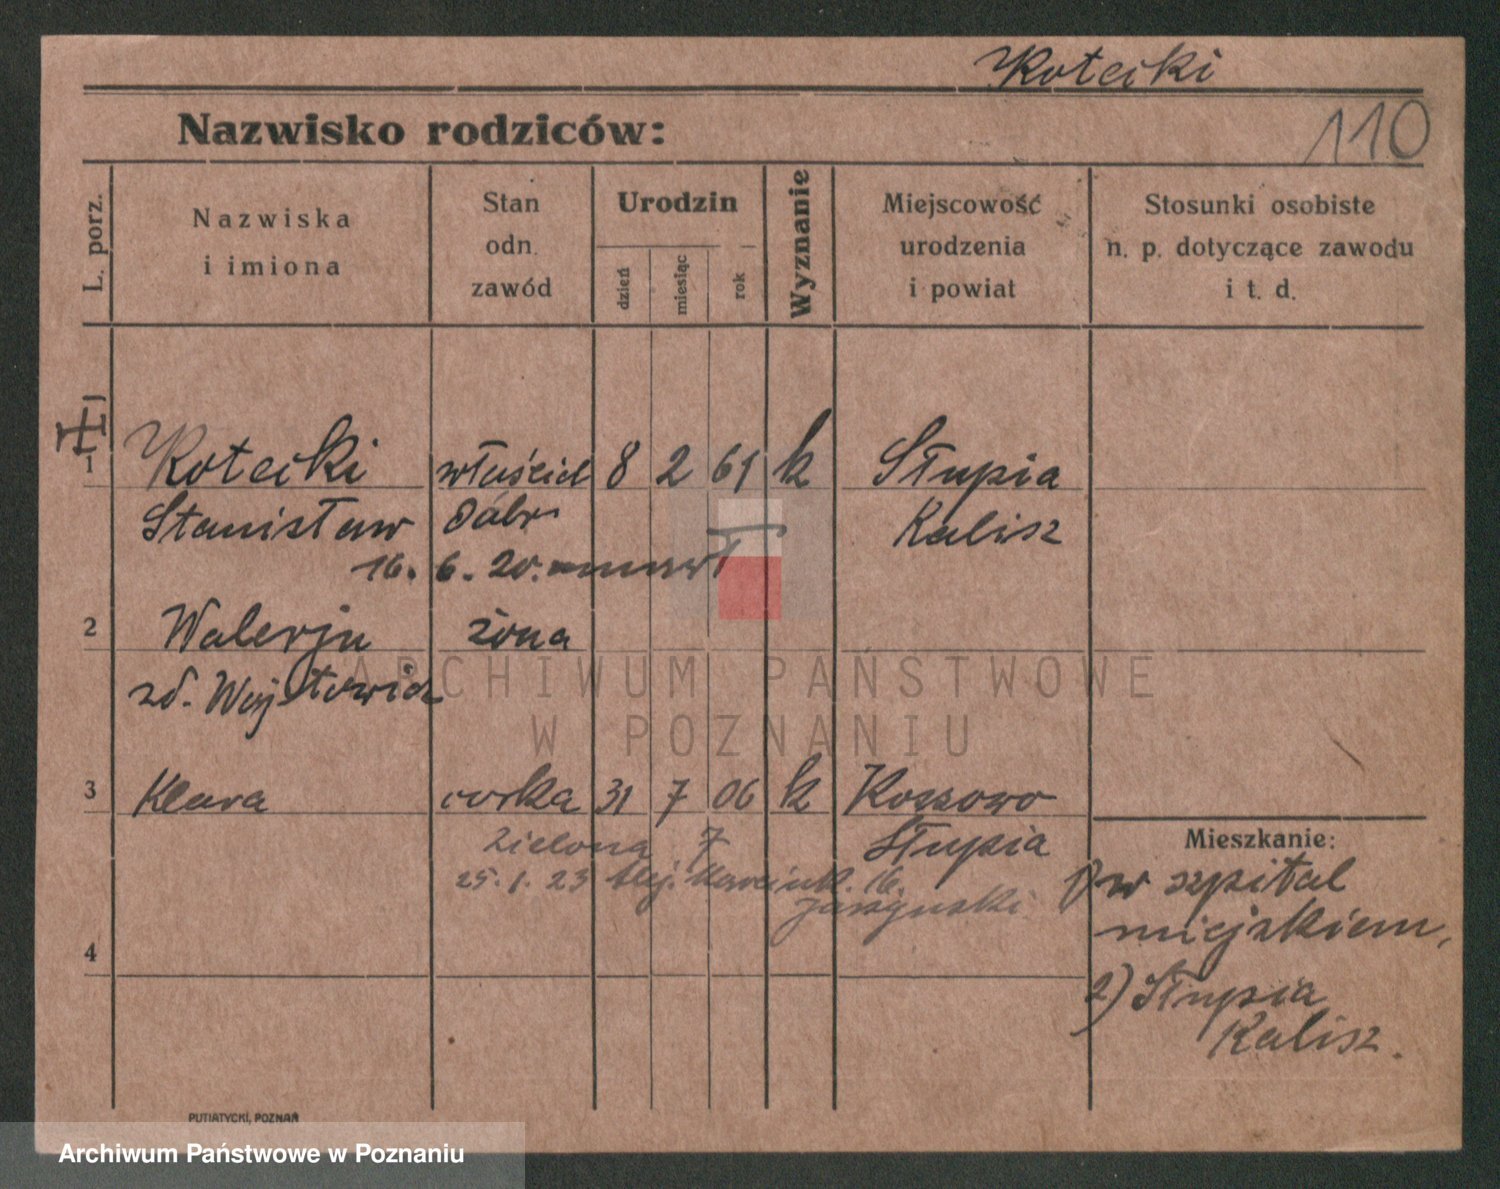 Kotecki
110
Nazwisko rodziców:
L. porz.
Nazwiska
i imiona
Stan
odn.
zawód
Urodzin
dzień
miesiąc
rok
Wyznanie
Miejscowość
urodzenia
i powiat
Stosunki osobiste
n. p. dotyczące zawodu
i t. d.
1 Kotecki właściciel 8 2 61 k Słupia
Stanisław Kalisz
16. 6. 20. umarł
2 Walerja żona
zd. Wojtowicz
3 Klara corka 31 7 06 k Kossowo
Słupia
Zielona 7
25. 1. 23 16.
4
Mieszkanie:
w szpital
miejskiem,
2) Słupia
Kalisz.
PUTIATYCKI, POZNAŃ
ARCHIWUM PAŃSTWOWE
W POZNANIU
Archiwum Państwowe w Poznaniu